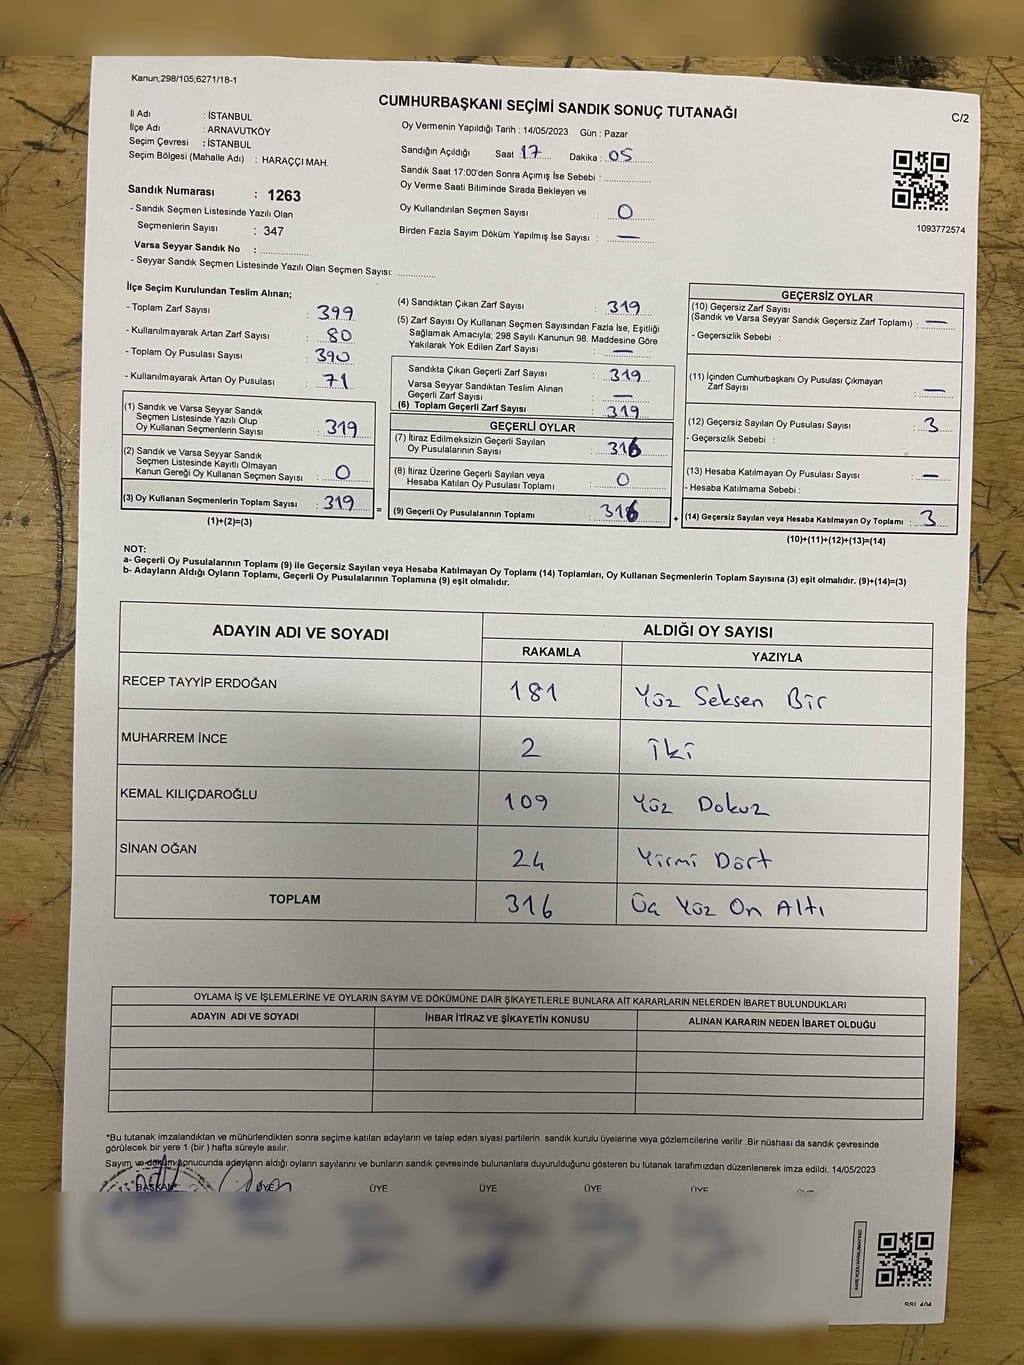 Kanun;298/105;6271/18-1
CUMHURBAŞKANI SEÇİMİ SANDIK SONUÇ TUTANAĞI
C/2
İl Adı : İSTANBUL
İlçe Adı : ARNAVUTKÖY
Seçim Çevresi : İSTANBUL
Seçim Bölgesi (Mahalle Adı) : HARAÇÇI MAH.
Sandık Numarası : 1263
- Sandık Seçmen Listesinde Yazılı Olan
Seçmenlerin Sayısı : 347
Varsa Seyyar Sandık No :
- Seyyar Sandık Seçmen Listesinde Yazılı Olan Seçmen Sayısı:
Oy Vermenin Yapıldığı Tarih : 14/05/2023 Gün : Pazar
Sandığın Açıldığı Saat 17 Dakika : 05
Sandık Saat 17:00'den Sonra Açımış İse Sebebi :
Oy Verme Saati Bitiminde Sırada Bekleyen ve
Oy Kullandırılan Seçmen Sayısı : 0
Birden Fazla Sayım Döküm Yapılmış İse Sayısı : —
1093772574
İlçe Seçim Kurulundan Teslim Alınan;
- Toplam Zarf Sayısı : 399
- Kullanılmayarak Artan Zarf Sayısı : 80
- Toplam Oy Pusulası Sayısı : 390
- Kullanılmayarak Artan Oy Pusulası : 71
(1) Sandık ve Varsa Seyyar Sandık
Seçmen Listesinde Yazılı Olup
Oy Kullanan Seçmenlerin Sayısı : 319
(2) Sandık ve Varsa Seyyar Sandık
Seçmen Listesinde Kayıtlı Olmayan
Kanun Gereği Oy Kullanan Seçmen Sayısı : 0
(3) Oy Kullanan Seçmenlerin Toplam Sayısı : 319
(1)+(2)=(3)
=
(4) Sandıktan Çıkan Zarf Sayısı : 319
(5) Zarf Sayısı Oy Kullanan Seçmen Sayısından Fazla İse, Eşitliği
Sağlamak Amacıyla; 298 Sayılı Kanunun 98. Maddesine Göre
Yakılarak Yok Edilen Zarf Sayısı : —
Sandıkta Çıkan Geçerli Zarf Sayısı : 319
Varsa Seyyar Sandıktan Teslim Alınan
Geçerli Zarf Sayısı : —
(6) Toplam Geçerli Zarf Sayısı : 319
GEÇERLİ OYLAR
(7) İtiraz Edilmeksizin Geçerli Sayılan
Oy Pusulalarının Sayısı : 316
(8) İtiraz Üzerine Geçerli Sayılan veya
Hesaba Katılan Oy Pusulası Toplamı : 0
(9) Geçerli Oy Pusulalarının Toplamı : 316
+
GEÇERSİZ OYLAR
(10) Geçersiz Zarf Sayısı
(Sandık ve Varsa Seyyar Sandık Geçersiz Zarf Toplamı) : —
- Geçersizlik Sebebi :
(11) İçinden Cumhurbaşkanı Oy Pusulası Çıkmayan
Zarf Sayısı : —
(12) Geçersiz Sayılan Oy Pusulası Sayısı : 3
- Geçersizlik Sebebi :
(13) Hesaba Katılmayan Oy Pusulası Sayısı : —
- Hesaba Katılmama Sebebi :
(14) Geçersiz Sayılan veya Hesaba Katılmayan Oy Toplamı : 3
(10)+(11)+(12)+(13)=(14)
NOT:
a- Geçerli Oy Pusulalarının Toplamı (9) ile Geçersiz Sayılan veya Hesaba Katılmayan Oy Toplamı (14) Toplamları, Oy Kullanan Seçmenlerin Toplam Sayısına (3) eşit olmalıdır. (9)+(14)=(3)
b- Adayların Aldığı Oyların Toplamı, Geçerli Oy Pusulalarının Toplamına (9) eşit olmalıdır.
ADAYIN ADI VE SOYADI
ALDIĞI OY SAYISI
RAKAMLA YAZIYLA
RECEP TAYYİP ERDOĞAN 181 Yüz Seksen Bir
MUHARREM İNCE 2 İki
KEMAL KILIÇDAROĞLU 109 Yüz Dokuz
SİNAN OĞAN 24 Yirmi Dört
TOPLAM 316 Üç Yüz On Altı
OYLAMA İŞ VE İŞLEMLERİNE VE OYLARIN SAYIM VE DÖKÜMÜNE DAİR ŞİKAYETLERLE BUNLARA AİT KARARLARIN NELERDEN İBARET BULUNDUKLARI
ADAYIN ADI VE SOYADI İHBAR İTİRAZ VE ŞİKAYETİN KONUSU ALINAN KARARIN NEDEN İBARET OLDUĞU
*Bu tutanak imzalandıktan ve mühürlendikten sonra seçime katılan adayların ve talep eden siyasi partilerin sandık kurulu üyelerine veya gözlemcilerine verilir .Bir nüshası da sandık çevresinde
görülecek bir yere 1 (bir ) hafta süreyle asılır.
Sayım ve döküm sonucunda adayların aldığı oyların sayılarını ve bunların sandık çevresinde bulunanlara duyurulduğunu gösteren bu tutanak tarafımızdan düzenlenerek imza edildi. 14/05/2023
BAŞKAN ÜYE ÜYE ÜYE ÜYE ÜYE